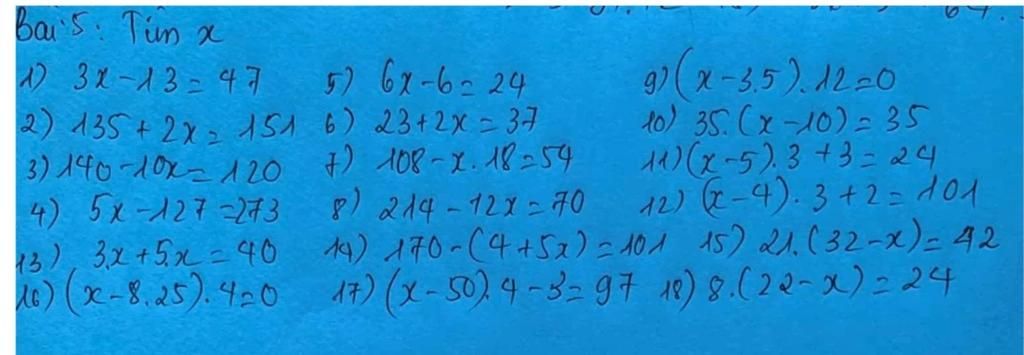 Bài 5: Tìm x
1) 3x - 13 = 47 5) 6x - 6 = 24 9) (x - 3.5).12 = 0
2) 135 + 2x = 151 6) 23 + 2x = 37 10) 35.(x - 10) = 35
3) 140 - 10x = 120 7) 108 - x.18 = 54 11) (x - 5).3 + 3 = 24
4) 5x - 127 = 273 8) 214 - 12x = 70 12) (x - 4).3 + 2 = 101
13) 3.x + 5.x = 40 14) 170 - (4 + 5x) = 101 15) 21.(32 - x) = 42
16) (x - 8.25).4 = 0 17) (x - 50).4 - 3 = 97 18) 8.(22 - x) = 24